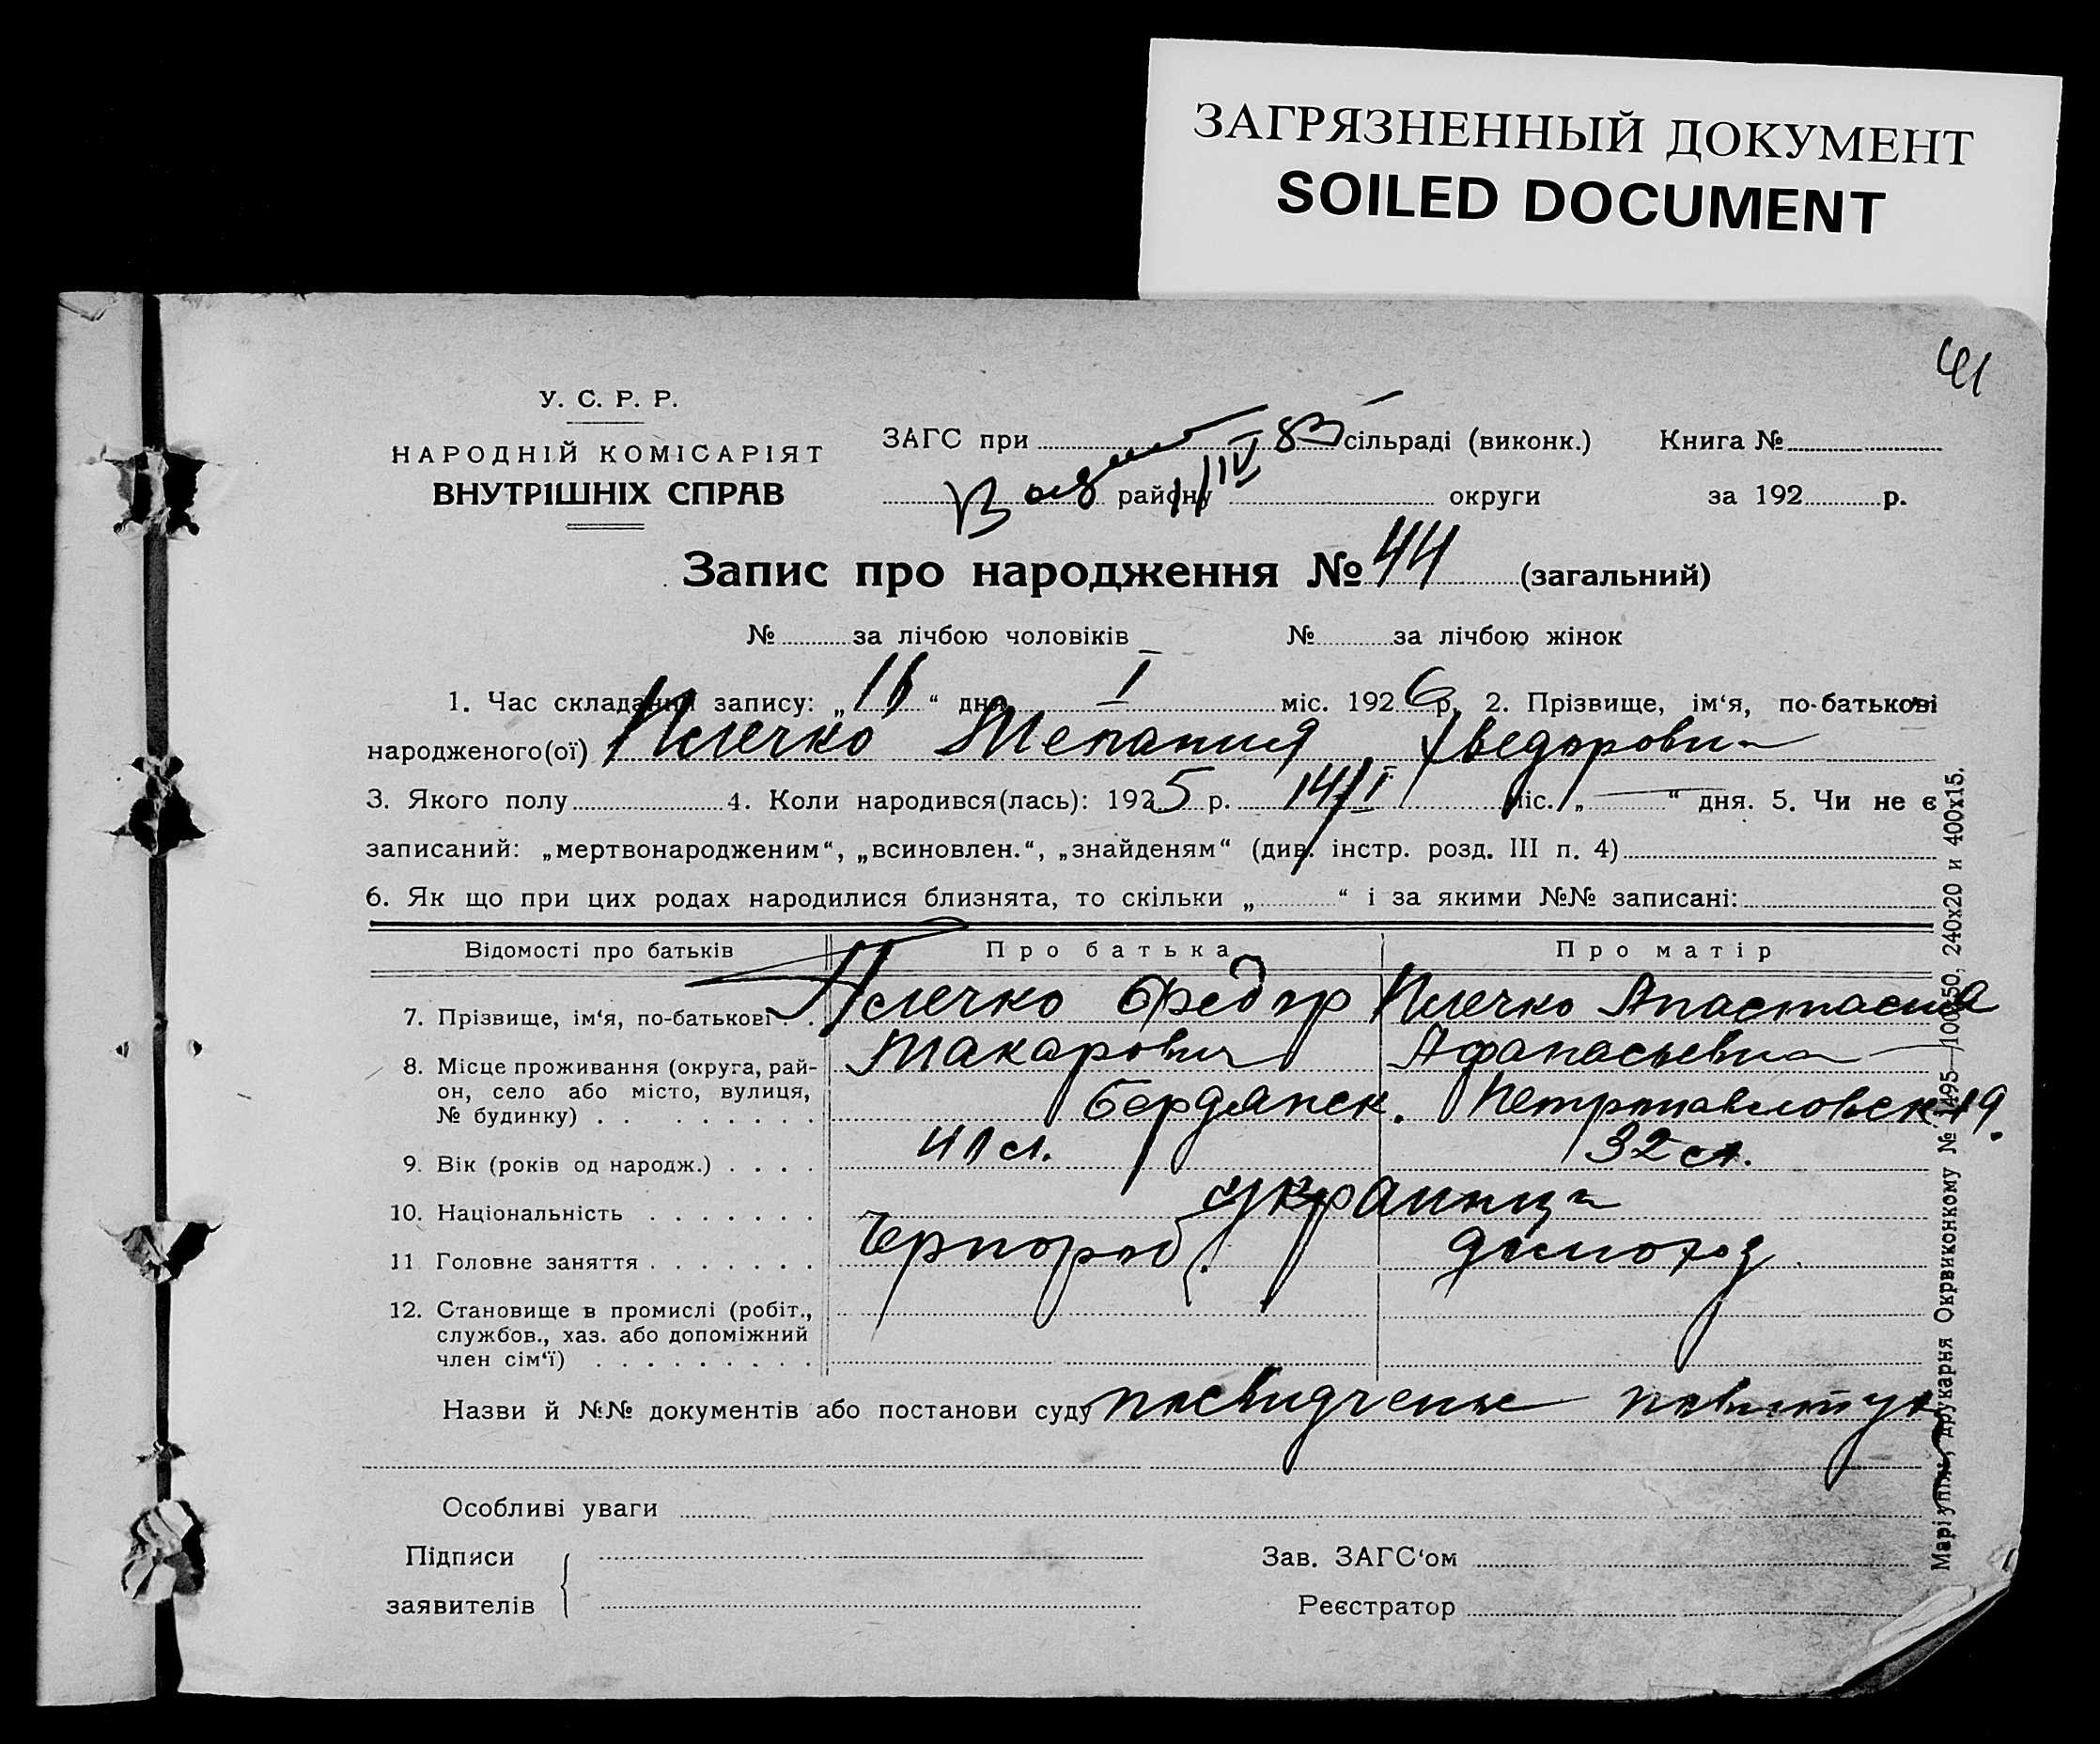 ЗАГРЯЗНЕННЫЙ ДОКУМЕНТ
SOILED DOCUMENT
41
У. С. Р. Р.
НАРОДНІЙ КОМІСАРІЯТ
ВНУТРІШНІХ СПРАВ
ЗАГС при сільраді (виконк.) Книга №
району округи за 192 р.
Запис про народження № 44 (загальний)
№ за лічбою чоловіків № за лічбою жінок
1. Час складання запису: „ “ дня I міс. 1926 р. 2. Прізвище, ім‘я, по-батькові
народженого(ої)
3. Якого полу 4. Коли народився(лась): 1925 р. 14/I міс. „ “ дня. 5. Чи не є
записаний: „мертвонародженим“, „всиновлен.“, „знайденям“ (див. інстр. розд. III п. 4)
6. Як що при цих родах народилися близнята, то скільки „ “ і за якими №№ записані:
Відомості про батьків Про батька Про матір
7. Прізвище, ім‘я, по-батькові . . Федор Анастасия
Макарович Афанасьевна
8. Місце проживання (округа, рай-
он, село або місто, вулиця,
№ будинку) . . . . . . . . Бердянск. Петропавловск 19.
9. Вік (років од народж.) . . . . 41 л. 32 л.
10. Національність . . . . . . . украинц
11 Головне заняття . . . . . . . Чернороб. домохоз.
12. Становище в промислі (робіт.,
службов., хаз. або допоміжний
член сім‘ї) . . . . . . . . . .
Назви й №№ документів або постанови суду посвидченье
Особливі уваги
Підписи
заявителів
Зав. ЗАГС‘ом
Реєстратор
Маріупіль, друкарня Окрвиконкому № 1495—100x50, 240x20 и 400x15.